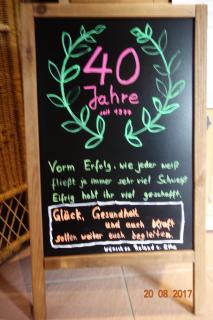 40
Jahre
seit 1977
Vorm Erfolg, wie jeder weiß
fließt ja immer sehr viel Schweiß
Eifrig habt ihr viel geschafft,
Glück, Gesundheit
und auch Kraft
sollen weiter euch begleiten.
wünschen Roland u. Elke
20 08 2017